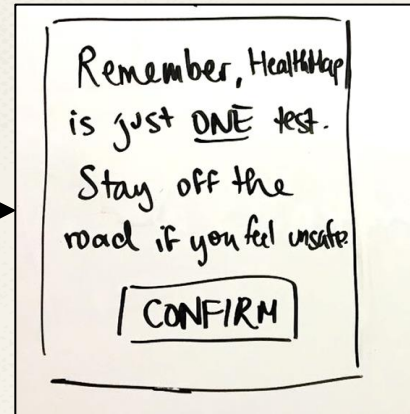 Remember, HealthMap
is just ONE test.
Stay off the
road if you feel unsafe.
CONFIRM